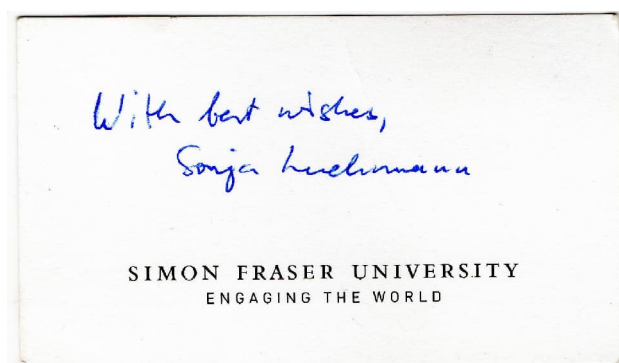 With best wishes,
Sonja Luehrmann
SIMON FRASER UNIVERSITY
ENGAGING THE WORLD